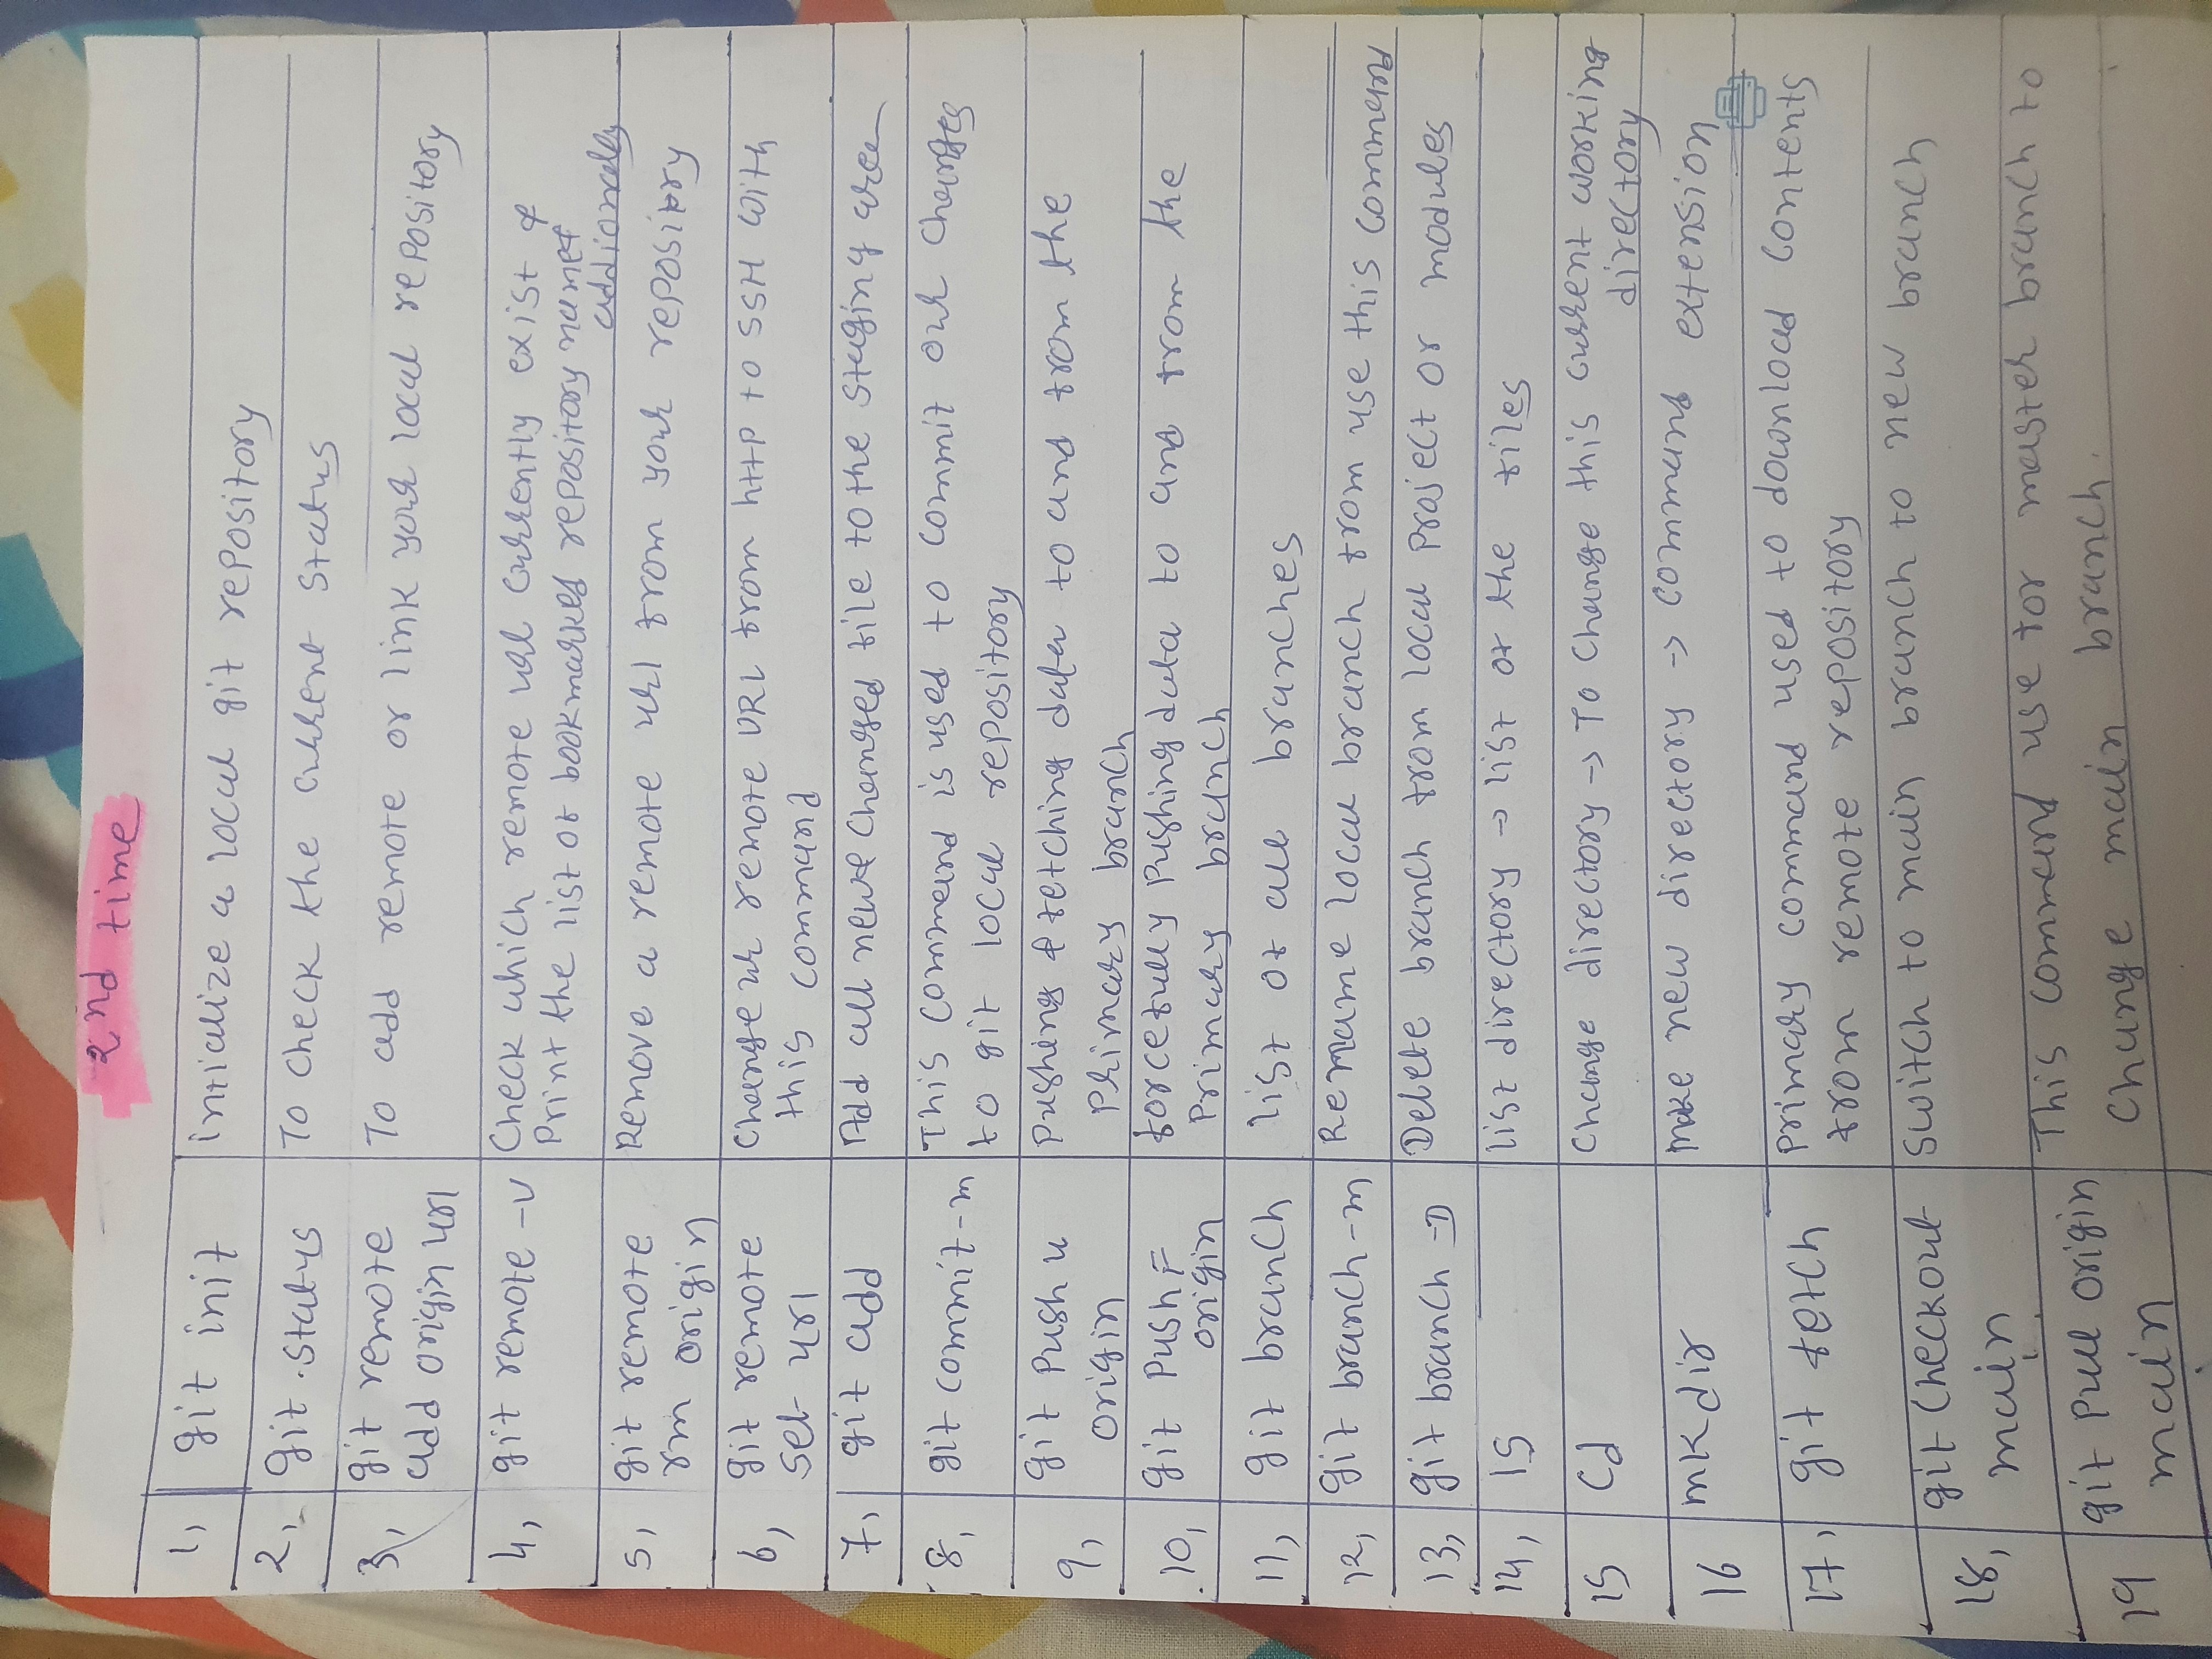 2nd time
1, git init intialize a local git repository
2, git status To check the current status
3, git remote To add remote or link your local repository
add origin url
4, git remote -v Check which remote url currently exist &
Print the list of bookmarked repository names
addionally
5, git remote Remove a remote url from your repository
rm origin
6, git remote Change ur remote URL from http to SSH with
set url this command
7, git add Add all new & changed file to the staging area
8, git commit -m This command is used to commit our changes
to git local repository
9, git Push u pushing & fetching data to and from the
origin Primary branch
10, git Push F forcefully Pushing data to and from the
origin Primary branch
11, git branch list of all branches
12, git branch -m Rename local branch from use this command
13, git branch -D Delete branch from local project or modules
14, ls list directory → list of the files
15 cd change directory → To change this current working
directory
16 mkdir make new directory → command extension
17, git fetch primary command used to download contents
from remote repository
18, git checkout switch to main branch to new branch
main
19 git pull origin This command use for master branch to
main change main branch.